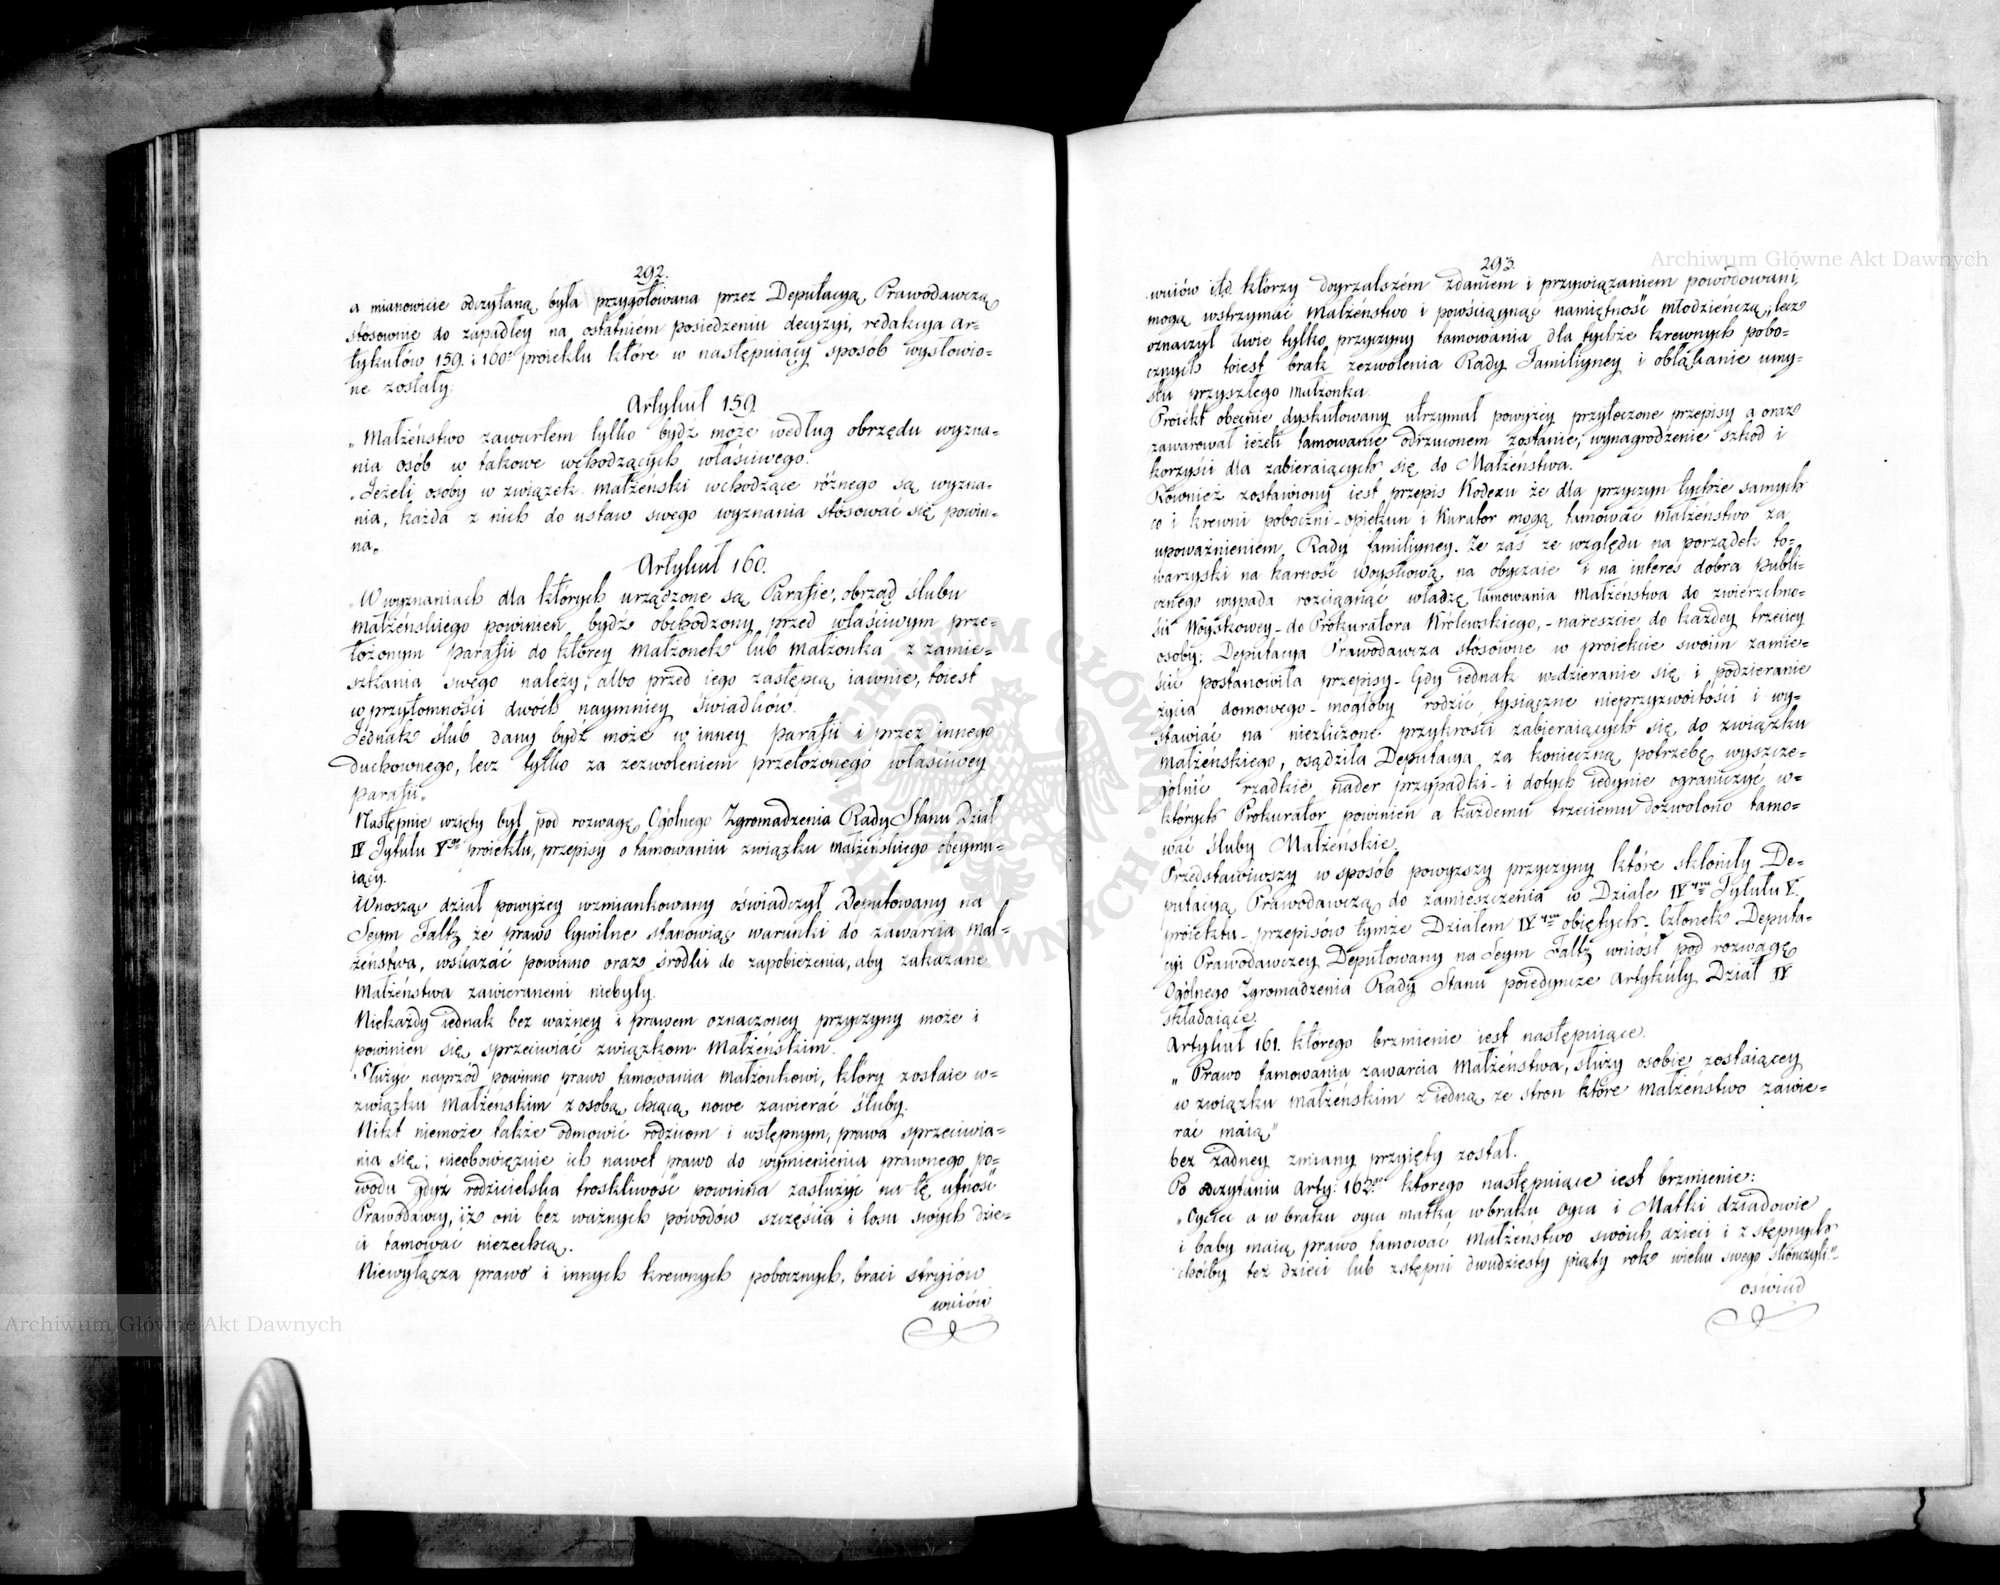 292.
a mianowicie odczytaną była przygotowana przez Deputacyą Prawodawczą
stósownie do zapadłey na ostatniém posiedzeniu decyzyi, redakcya ar=
tykułów 159. i 160go proiektu które w następuiący sposób wysłowio=
ne zostały:
Artykuł 159.
„Małżeństwo zawartem tylko bydź może według obrzędu wyzna=
nia osób w takowe wchodzących właściwego.
„Jeżeli osoby w związek małżeński wchodzące różnego są wyzna=
nia, każda z nich do ustaw swego wyznania stósować się powin=
na„
Artykuł 160.
„W wyznaniach dla których urządzone są Parafie, obrząd ślubu
małżeńskiego powinien bydź obchodzony przed właściwym prze=
łożonym parafii do którey małżonek lub małżonka z zamie=
szkania swego należy, albo przed iego zastępcą iawnie, toiest
w przytomności dwoch naymniey świadków.
Jednak ślub dany bydź może w inney parafii i przez innego
duchownego, lecz tylko za zezwoleniem przełożonego właściwey
parafii„
Następnie wzięty był pod rozwagę Ogólnego Zgromadzenia Rady Stanu Dział
IV Tytułu Vgo proiektu, przepisy o tamowaniu związku małżeńskiego obeymu=
iący.
Wnosząc dział powyżey wzmiankowany oświadczył Deputowany na
Seym Faltz że prawo cywilne stanowiąc warunki do zawarcia mał=
żeństwa, wskazać powinno oraz środki do zapobieżenia, aby zakazane
Małżeństwa zawieranemi niebyły.
Niekażdy iednak bez ważney i prawem oznaczoney przyczyny może i
powinien się sprzeciwiać związkom Małżeńskim.
Służyć naprzód powinno prawo tamowania małżonkowi, który zostaie w=
związku Małżeńskim z osobą chcącą nowe zawierać śluby.
Nikt niemoże także odmowić rodzicom i wstępnym, prawa sprzeciwia=
nia się; nieobowięzuie ich nawet prawo do wymienienia prawnego po=
wodu gdyż rodzicielska troskliwość powinna zasłużyć na tę ufność
Prawodawcy, iż oni bez ważnych powodów szczęścia i losu swych dzie=
ci tamować niezechcą.
Niewyłącza prawo i innych krewnych pobocznych, braci stryiów
wuiów
wuiów itd. którzy doyrzalszém zdaniem i przywiązaniem powodowani,
293.
mogą wstrzymać Małżeństwo i powściągnąć namiętność młodzieńczą, lecz
oznaczył dwie tylko przyczyny tamowania dla tychże krewnych pobo=
cznych toiest brak zezwolenia Rady Familiyney i obłąkanie umy=
słu przyszłego małżonka.
Proiekt obecnie dyskutowany utrzymał powyżey przytoczone przepisy a oraz
zawarował ieżeli tamowanie odrzuconem zostanie, wynagrodzenie szkód i
korzyści dla zabieraiących się do Małżeństwa.
Również zostawiony iest przepis Kodexu że dla przyczyn tychże samych
co i krewni poboczni - opiekun i Kurator mogą tamować małżeństwo za
upoważnieniem Rady familiyney. Że zaś ze względu na porządek to=
warzyski na karność woyskową na obyczaie i na interes dobra publi=
cznego wypada rozciągnąć władzę tamowania Małżeństwa do zwierzchno=
ści Woyskowey - do Prokuratora Królewskiego, - nareszcie do każdey trzeciey
osoby; Deputacya Prawodawcza stósowne w proiekcie swoim zamie=
ścić postanowiła przepisy - Gdy iednak wdzieranie się i podzieranie
życia domowego - mogłoby rodzić tysiączne nieprzyzwoitości i wy=
stawiać na niezliczone przykrości zabieraiących się do związku
Małżeńskiego, osądziła Deputacya za konieczną potrzebę wyszcze=
gólnić rzadkie nader przypadki - i dotych iedynie ograniczyć w=
których Prokurator powinien a każdemu trzeciemu dozwolono tamo=
wać śluby Małżeńskie.
Przedstawiwszy w sposób powyższy przyczyny które skłoniły De=
putacyą Prawodawczą do zamieszczenia w Dziale IVtym Tytułu V.
proiektu - przepisów tymże Działem IVtym obiętych - Członek Deputa=
cyi Prawodawczey Deputowany na Seym Faltz wniósł pod rozwagę
Ogólnego Zgromadzenia Rady Stanu poiedyncze Artykuły Dział IV
składaiące.
Artykuł 161. którego brzmienie iest następuiące.
„Prawo tamowania zawarcia Małżeństwa, służy osobie zostaiącey
w związku małżeńskim z iedną ze stron które małżeństwo zawie=
rać maią"
bez żadney zmiany przyięty został.
Po odczytaniu Arty: 162go ktorego następuiące iest brzmienie:
„Oyciec a w braku oyca matka w braku oyca i Matki dziadowie
i baby maią prawo tamować Małżeństwo swoich dzieci i zstępnych
choćby też dzieci lub zstępni dwudziesty piąty rok wieku swego skończyli."
oświad
Archiwum Główne Akt Dawnych
Archiwum Główne Akt Dawnych
ARCHIWUM GŁÓWNE AKT DAWNYCH